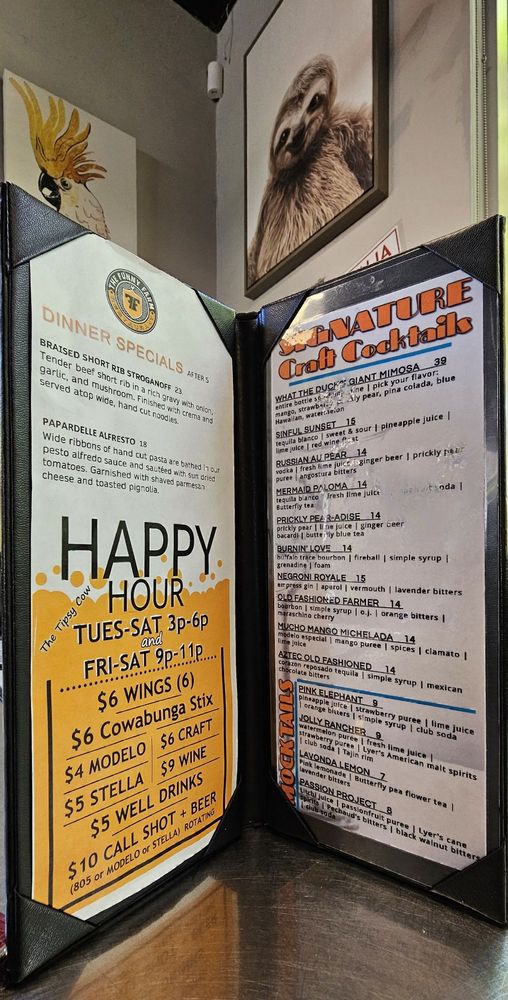 THE FUNNY FARM
FF
DINNER SPECIALS AFTER 5
BRAISED SHORT RIB STROGANOFF 23
Tender beef short rib in a rich gravy with onion,
garlic, and mushroom. Finished with crema and
served atop wide, hand cut noodles.
PAPARDELLE ALFRESTO 18
Wide ribbons of hand cut pasta are bathed in our
pesto alfredo sauce and sautéed with sun dried
tomatoes. Garnished with shaved parmesan
cheese and toasted pignolia.
HAPPY
HOUR
The Tipsy Cow
TUES-SAT 3p-6p
and
FRI-SAT 9p-11p
$6 WINGS (6)
$6 Cowabunga Stix
$4 MODELO
$6 CRAFT
$5 STELLA
$9 WINE
$5 WELL DRINKS
$10 CALL SHOT + BEER
(805 or MODELO or STELLA) ROTATING
SIGNATURE
Craft Cocktails
WHAT THE DUCK? GIANT MIMOSA 39
entire bottle | pick your flavor:
mango, strawberry, pear, pina colada, blue
Hawaiian, watermelon
SINFUL SUNSET 15
tequila blanco | sweet & sour | pineapple juice |
lime juice | red wine float
RUSSIAN AU PEAR 14
vodka | fresh lime juice | ginger beer | prickly pear
puree | angostura bitters
MERMAID PALOMA 14
tequila blanco | fresh lime juice soda |
Butterfly tea
PRICKLY PEAR-ADISE 14
prickly pear | lime juice | ginger beer
bacardi | butterfly blue tea
BURNIN' LOVE 14
buffalo trace bourbon | fireball | simple syrup |
grenadine | foam
NEGRONI ROYALE 15
empress gin | aperol | vermouth | lavender bitters
OLD FASHIONED FARMER 14
bourbon | simple syrup | o.j. | orange bitters |
maraschino cherry
MUCHO MANGO MICHELADA 14
modelo especial | mango puree | spices | clamato |
lime juice
AZTEC OLD FASHIONED 14
corazon reposado tequila | simple syrup | mexican
chocolate bitters
MOCKTAILS
PINK ELEPHANT 9
pineapple juice | strawberry puree | lime juice
| orange bitters | simple syrup | club soda
JOLLY RANCHER 9
watermelon puree | fresh lime juice |
strawberry puree | Lyer's American malt spirits
| club soda | Tajin rim
LAVONDA LEMON 7
Pink lemonade | Butterfly pea flower tea |
lavender bitters
PASSION PROJECT 8
Litchi juice | passionfruit puree | Lyer's cane
spirits | Pechaud's bitters | black walnut bitters
| club soda